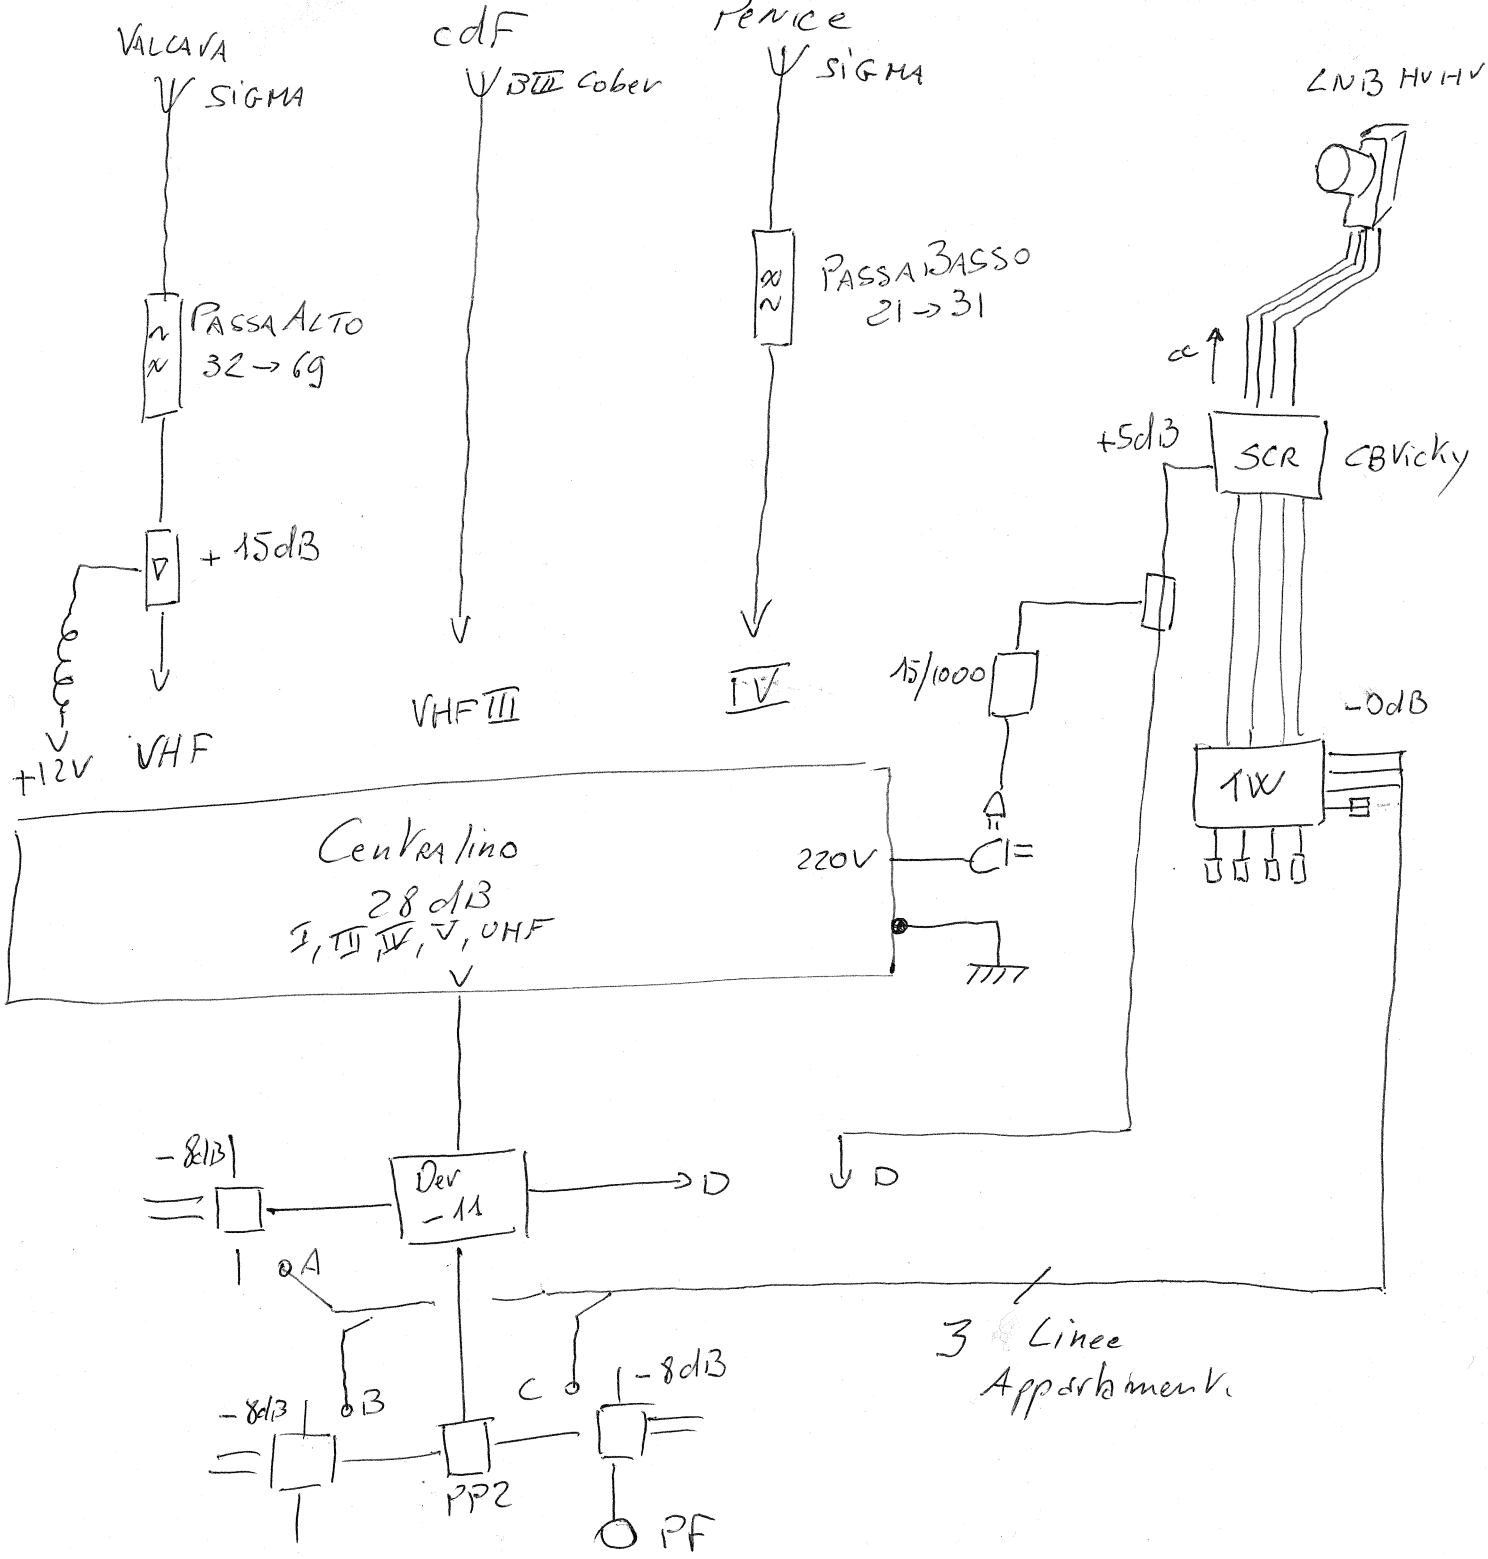 VALCAVA
SIGMA
cdF
BIII Cober
PENICE
SIGMA
LNB HVHV
PASSA ALTO
32→69
PASSA BASSO
21→31
cc
+5dB
SCR
CBVicky
+ 15dB
15/1000
VHF III
IV
-0dB
+12V
VHF
TW
Centralino
28 dB
I, III, IV, V, UHF
220V
-8dB
Dev
-11
D
D
A
3 Linee
Appartament.
B
C
-8dB
-8dB
PP2
PF